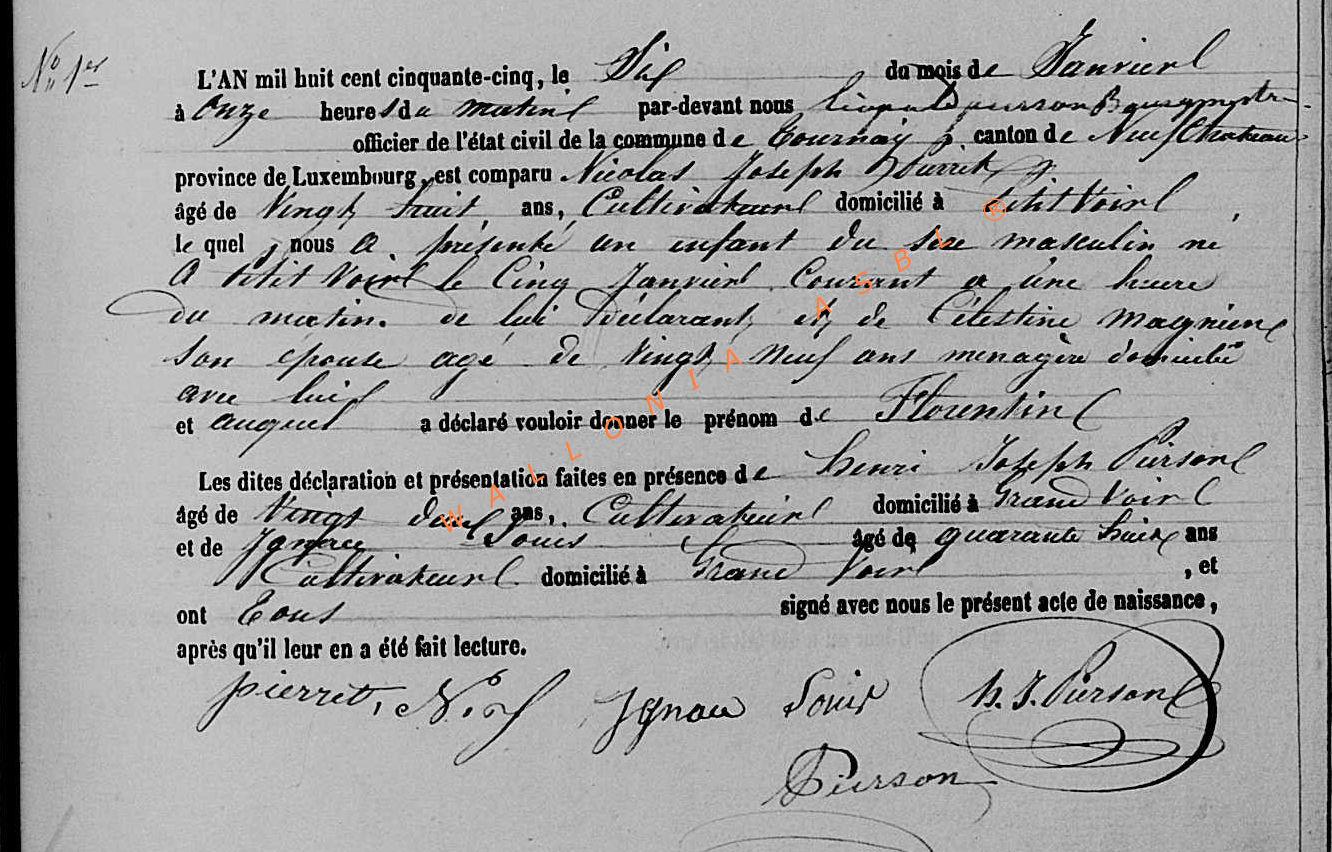 N° 1er
L'AN mil huit cent cinquante-cinq, le Six du mois de Janvier
à Onze heures du matin par-devant nous Léopold Pierson Bourgmestre
officier de l'état civil de la commune de Tournay, canton de Neufchateau
province de Luxembourg, est comparu Nicolas Joseph Pierret
âgé de Vingt huit ans, Cultivateur domicilié à Petit Voir,
le quel, nous a présenté un enfant du sexe masculin né
A Petit Voir le Cinq Janvier Courant a Une heure
du matin. de lui Déclarant, et de Célestine Magnien
Son épouse agé de Vingt Neuf ans menagère domicilié
avec lui
et auquel a déclaré vouloir donner le prénom de Florentin
Les dites déclaration et présentation faites en présence de henri Joseph Pierson
âgé de Vingt deux ans, Cultivateur domicilié à Grand Voir
et de Ignace Louis âgé de quarante huit ans
Cultivateur domicilié à Grand Voir, et
ont Tous signé avec nous le présent acte de naissance,
après qu'il leur en a été fait lecture.
pierret, N. J. Ignace Louis h. J. Pierson
Pierson
WALLONIA ASBL ®